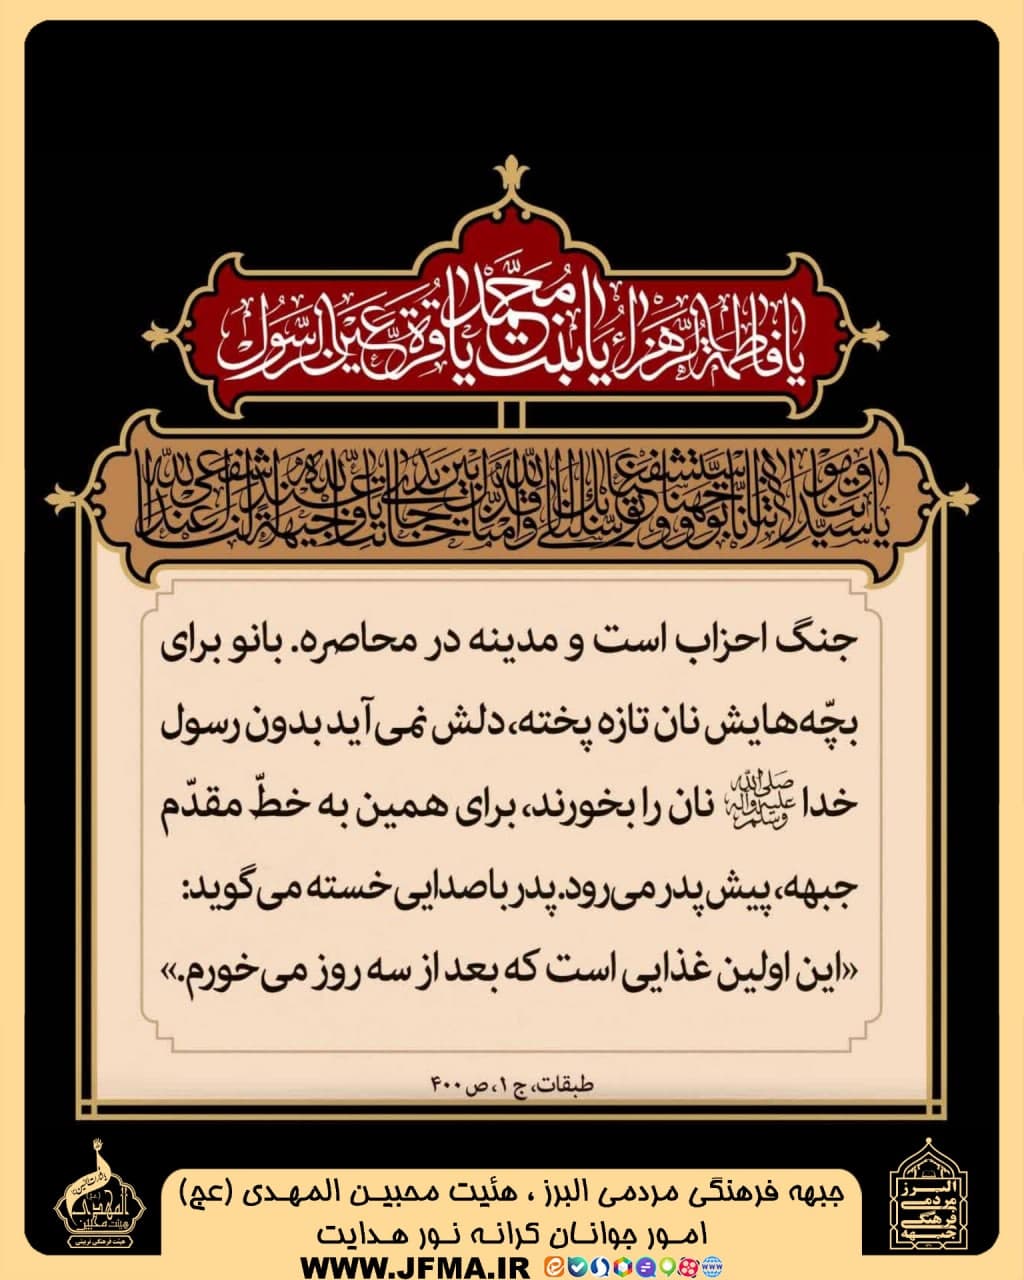 یا فاطمة الزهراء یا بنت محمد یا قرة عین الرسول
یا سیدتنا و مولاتنا انا توجهنا و استشفعنا و توسلنا بک الی الله و قدمناک بین یدی حاجاتنا یا وجیهة عند الله اشفعی لنا عند الله
جنگ احزاب است و مدینه در محاصره. بانو برای
بچّه‌هایش نان تازه پخته، دلش نمی‌آید بدون رسول
خدا صلی الله علیه وآله وسلم نان را بخورند، برای همین به خطّ مقدّم
جبهه، پیش پدر می‌رود. پدر با صدایی خسته می‌گوید:
«این اولین غذایی است که بعد از سه روز می‌خورم.»
طبقات، ج ۱، ص ۴۰۰
جبهه فرهنگی مردمی البرز ، هئیت محبین المهدی (عج)
امور جوانان کرانه نور هدایت
WWW.JFMA.IR
المهدی
هیئت محبین
البرز
مردمی
فرهنگی
جبهه